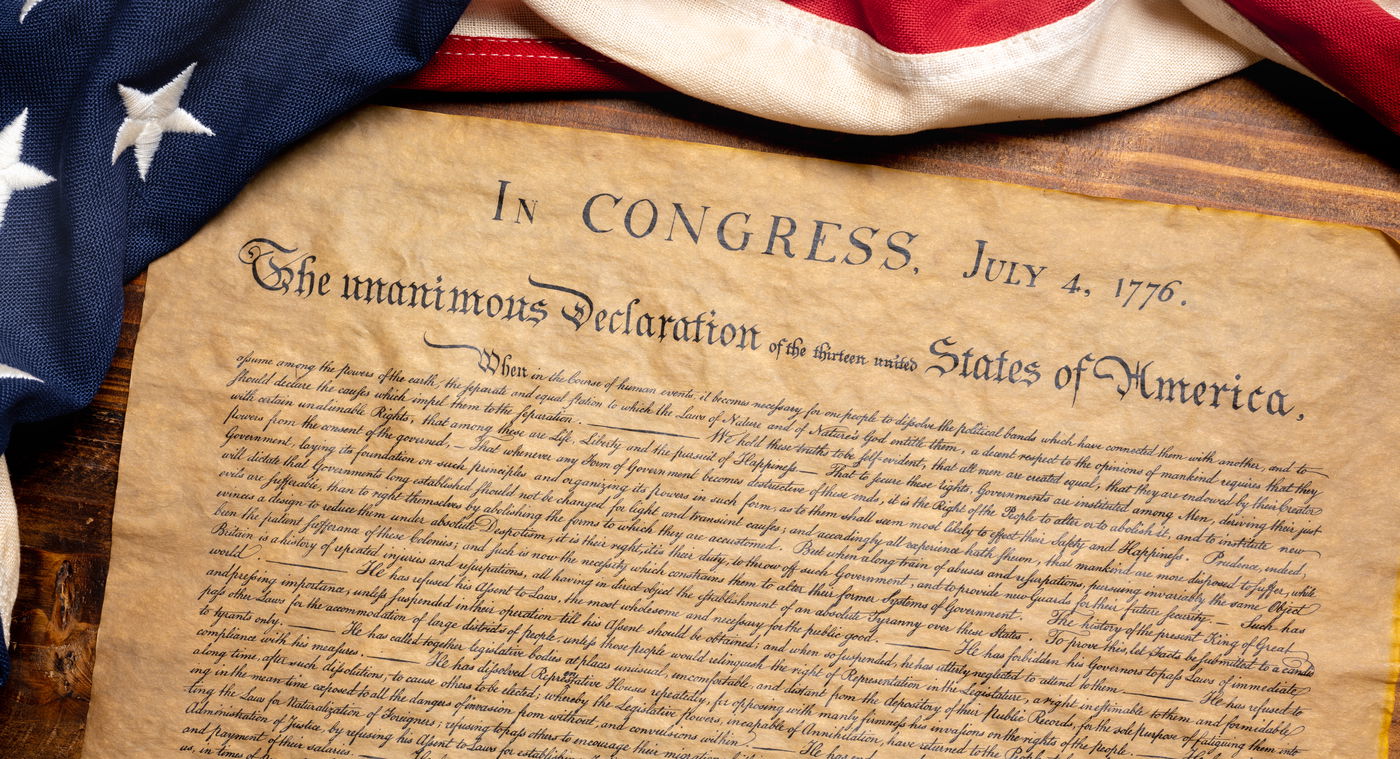 In CONGRESS, July 4, 1776.
The unanimous Declaration of the thirteen united States of America,
When in the Course of human events, it becomes necessary for one people to dissolve the political bands which have connected them with another, and to
assume among the powers of the earth, the separate and equal station to which the Laws of Nature and of Nature's God entitle them, a decent respect to the opinions of mankind requires that they
should declare the causes which impel them to the separation. We hold these truths to be self-evident, that all men are created equal, that they are endowed by their Creator
with certain unalienable Rights, that among these are Life, Liberty and the pursuit of Happiness — That to secure these rights, Governments are instituted among Men, deriving their just
powers from the consent of the governed, — That whenever any Form of Government becomes destructive of these ends, it is the Right of the People to alter or to abolish it, and to institute new
Government, laying its foundation on such principles, and organizing its powers in such form, as to them shall seem most likely to effect their Safety and Happiness. Prudence, indeed,
will dictate that Governments long established should not be changed for light and transient causes; and accordingly all experience hath shewn, that mankind are more disposed to suffer, while
evils are sufferable, than to right themselves by abolishing the forms to which they are accustomed. But when a long train of abuses and usurpations, pursuing invariably the same Object
evinces a design to reduce them under absolute Despotism, it is their right, it is their duty, to throw off such Government, and to provide new Guards for their future security. — Such has
been the patient sufferance of these Colonies; and such is now the necessity which constrains them to alter their former Systems of Government. The history of the present King of Great
Britain is a history of repeated injuries and usurpations, all having in direct object the establishment of an absolute Tyranny over these States. To prove this let Facts be submitted to a candid
world. He has refused his Assent to Laws, the most wholesome and necessary for the public good. He has forbidden his Governors to pass Laws of immediate
and pressing importance, unless suspended in their operation till his Assent should be obtained; and when so suspended, he has utterly neglected to attend to them. He has refused to
pass other Laws for the accommodation of large districts of people, unless those people would relinquish the right of Representation in the Legislature, a right inestimable to them and formidable
to tyrants only. He has called together legislative bodies at places unusual, uncomfortable, and distant from the depository of their public Records, for the sole purpose of fatiguing them into
compliance with his measures. He has dissolved Representative Houses repeatedly, for opposing with manly firmness his invasions on the rights of the people. He has refused for a
along time, after such dissolutions, to cause others to be elected; whereby the Legislative powers, incapable of Annihilation, have returned to the People
ing in the mean time exposed to all the dangers of invasion from without, and convulsions within. He has
ting the Laws for Naturalization of Foreigners; refusing to pass others to encourage their
Administration of Justice, by refusing his Assent to Laws for
and payment of their salaries.
us, in times of